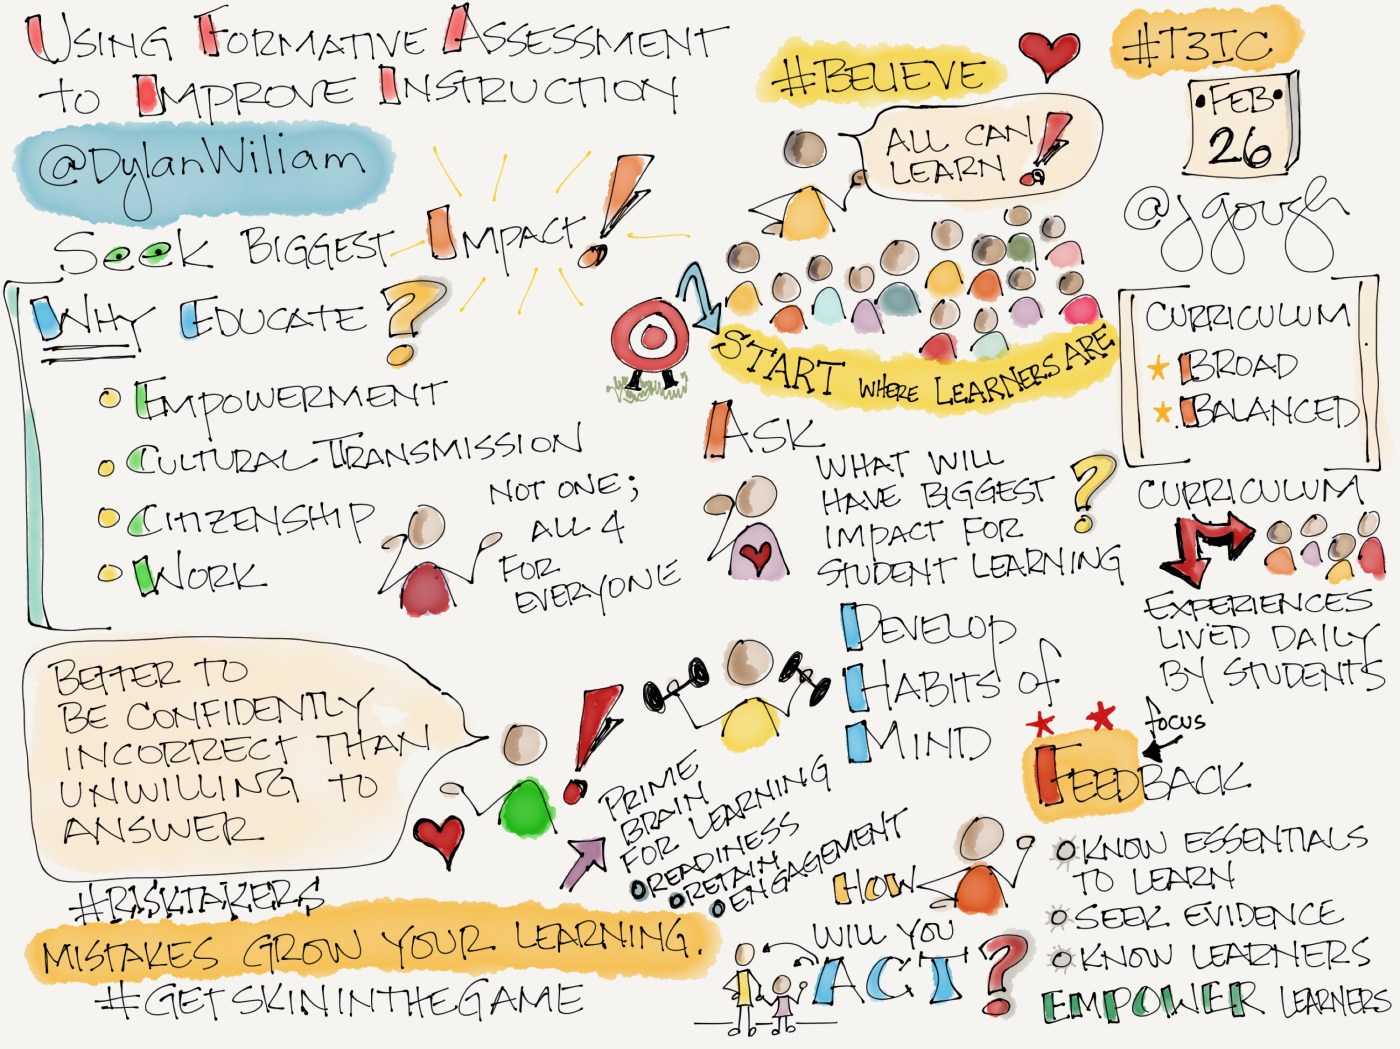 USING FORMATIVE ASSESSMENT
to IMPROVE INSTRUCTION
@DylanWiliam
SEEK BIGGEST IMPACT!
WHY EDUCATE?
EMPOWERMENT
CULTURAL TRANSMISSION
CITIZENSHIP
WORK
NOT ONE;
ALL 4
FOR
EVERYONE
BETTER TO
BE CONFIDENTLY
INCORRECT THAN
UNWILLING TO
ANSWER
!
#RISKTAKERS
MISTAKES GROW YOUR LEARNING.
#GETSKININTHEGAME
#BELIEVE
ALL CAN
LEARN!
START WHERE LEARNERS ARE
ASK
WHAT WILL
HAVE BIGGEST
IMPACT FOR
STUDENT LEARNING
?
DEVELOP
HABITS of
MIND
PRIME
BRAIN
FOR LEARNING
READINESS
RETAIN
ENGAGEMENT
HOW
WILL YOU
ACT?
#T3IC
FEB
26
@jgough
CURRICULUM
BROAD
BALANCED
CURRICULUM
EXPERIENCES
LIVED DAILY
BY STUDENTS
focus
FEEDBACK
KNOW ESSENTIALS
TO LEARN
SEEK EVIDENCE
KNOW LEARNERS
EMPOWER LEARNERS